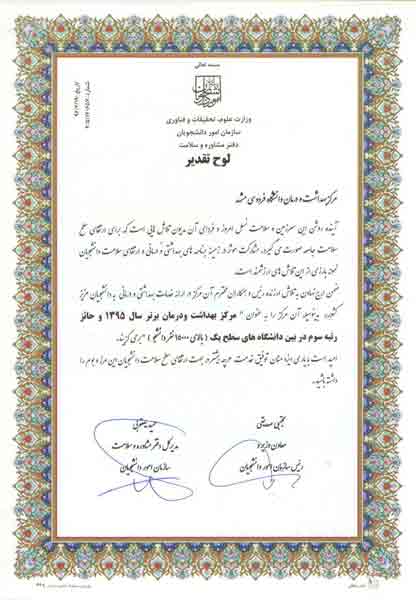 بسمه تعالی
وزارت علوم، تحقیقات و فناوری
سازمان امور دانشجویان
دفتر مشاوره و سلامت
لوح تقدیر
مرکز بهداشت و درمان دانشگاه فردوسی مشهد
آینده روشن این سرزمین و سلامت نسل امروز و فردای آن مدیون تلاش هایی است که برای ارتقای سطح
سلامت جامعه صورت می گیرد، مشارکت موثر در زمینه برنامه های بهداشتی و درمانی و ارتقای سلامت دانشجویان
نمونه بارزی از این تلاش های ارزشمند است.
ضمن ارج نهادن به تلاش ارزنده رئیس و همکاران محترم آن مرکز در ارائه خدمات بهداشتی و درمانی به دانشجویان عزیز
کشور، بدینوسیله آن مرکز را به عنوان " مرکز بهداشت ودرمان برتر سال ۱۳۹۵ و حائز
رتبه سوم در بین دانشگاه های سطح یک (بالای ۱۵۰۰۰ نفر دانشجو) " برمی گزیند.
امید است با یاری ایزد منان توفیق خدمت هر چه بیشتر در جهت ارتقای سطح سلامت دانشجویان این مرز و بوم را
داشته باشید.
مجتبی صدیقی
معاون وزیر و
رئیس سازمان امور دانشجویان
حمید یعقوبی
مدیرکل دفتر مشاوره و سلامت
سازمان امور دانشجویان